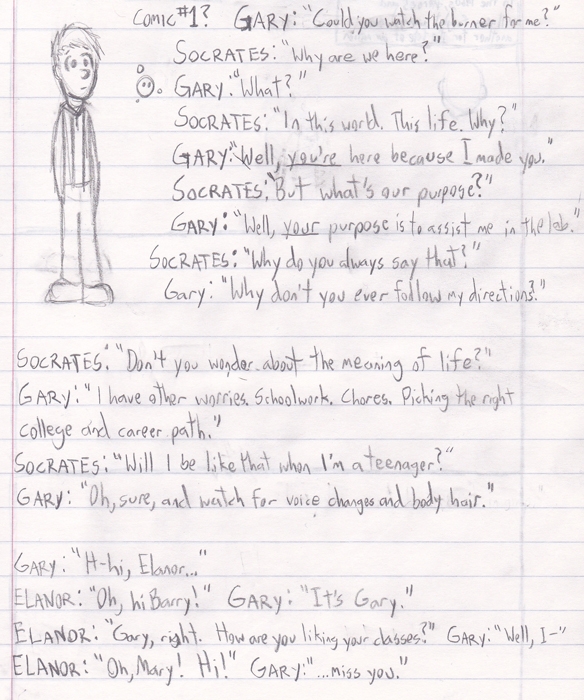 Comic #1? GARY: "Could you watch the burner for me?"
SOCRATES: "Why are we here?"
GARY: "What?"
SOCRATES: "In this world. This life. Why?"
GARY: "Well, you're here because I made you."
SOCRATES: "But what's our purpose?"
GARY: "Well, your purpose is to assist me in the lab."
SOCRATES: "Why do you always say that?"
Gary: "Why don't you ever follow my directions?"
SOCRATES: "Don't you wonder about the meaning of life?"
GARY: "I have other worries. Schoolwork. Chores. Picking the right
college and career path."
SOCRATES: "Will I be like that when I'm a teenager?"
GARY: "Oh, sure, and watch for voice changes and body hair."
GARY: "H-hi, Elanor..."
ELANOR: "Oh, hi Barry!" GARY: "It's Gary."
ELANOR: "Gary, right. How are you liking your classes?" GARY: "Well, I-"
ELANOR: "Oh, Mary! Hi!" GARY: "...miss you."